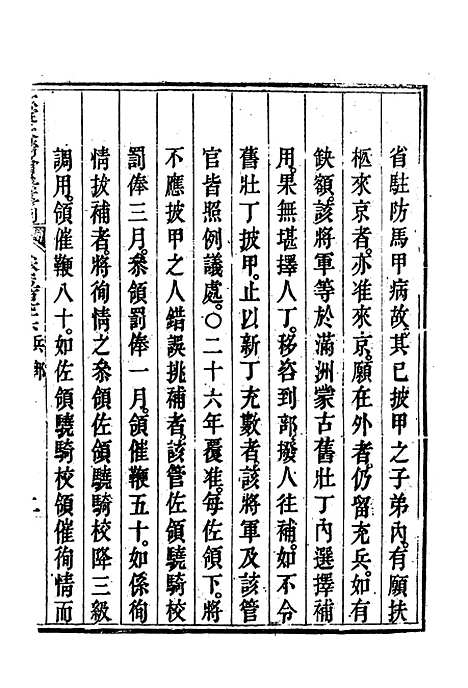 省駐防馬甲病故。其已披甲之子弟內。有願扶
柩來京者。亦准來京。願在外者。仍留充兵。如有
缺額。該將軍等於滿洲蒙古舊壯丁內選擇補
用。果無堪擇人丁。移咨到部。撥人往補。如不令
舊壯丁披甲。止以新丁充數者。該將軍及該管
官皆照例議處。〇二十六年覆准。每佐領下。將
不應披甲之人錯誤挑補者。該管佐領驍騎校
罰俸三月。叅領罰俸一月。領催鞭五十。如係徇
情拔補者。將徇情之叅領佐領驍騎校降三級
調用。領催鞭八十。如佐領驍騎校領催徇情而
兵部